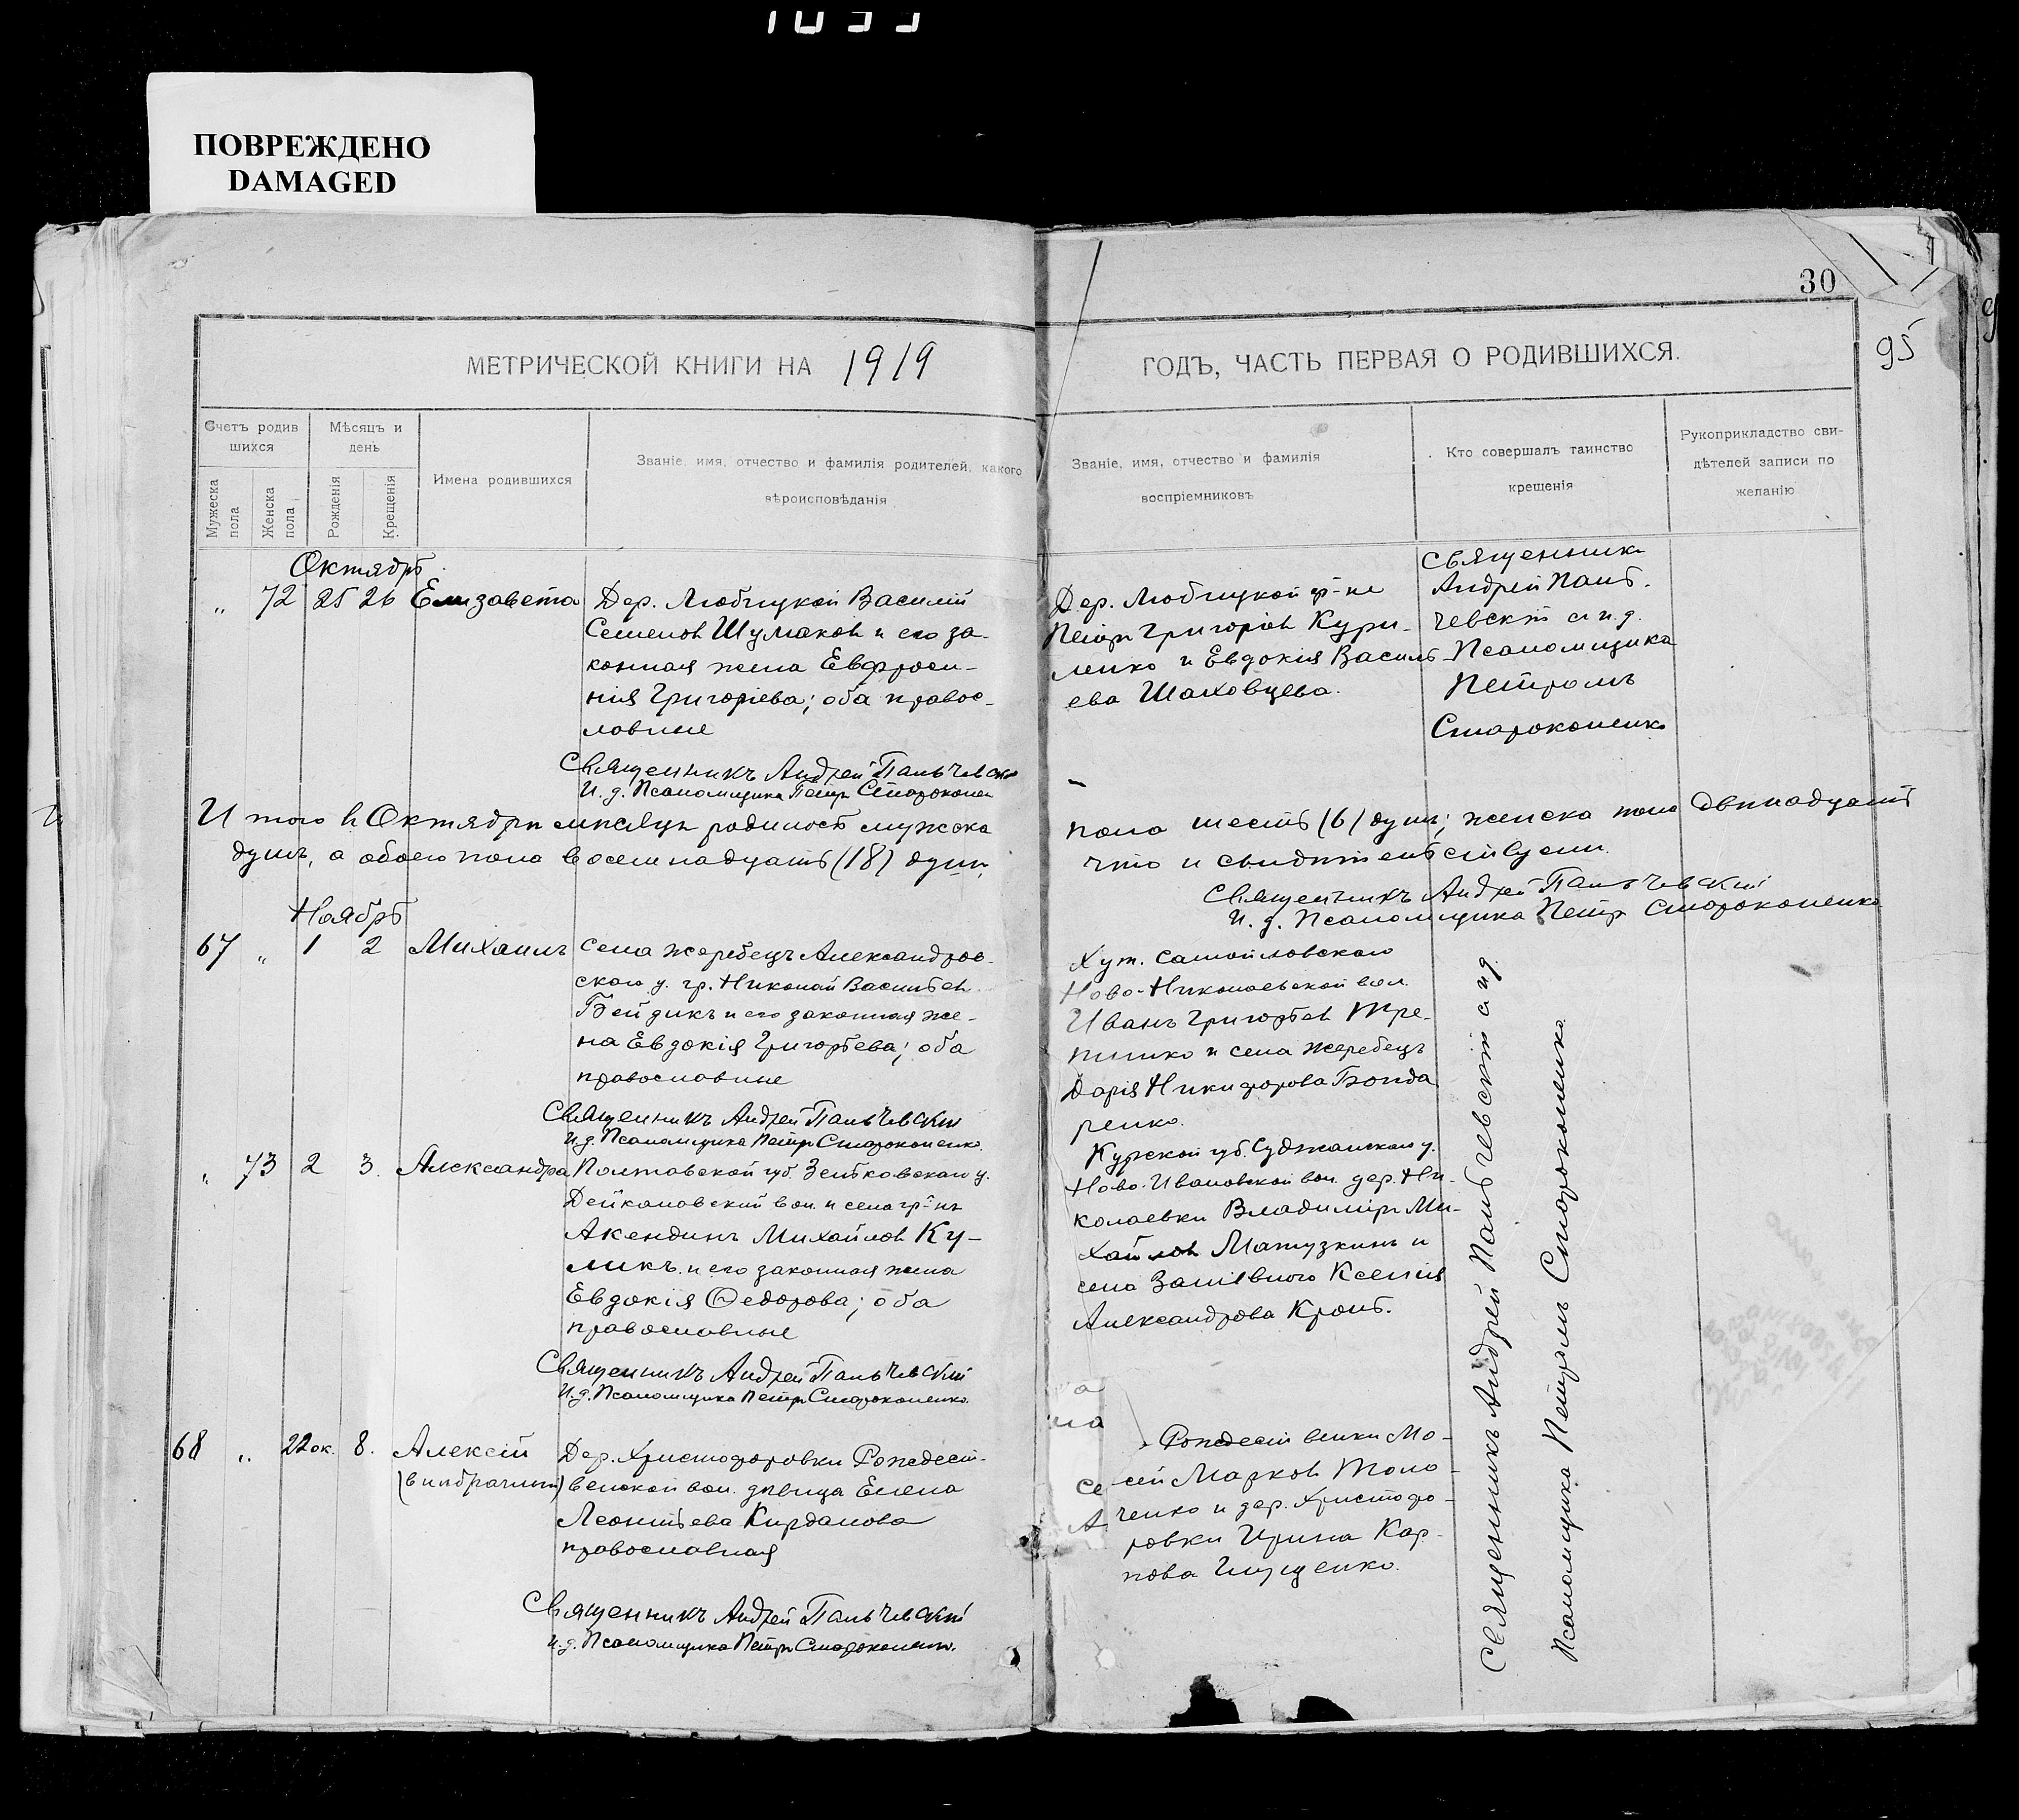 1033
ПОВРЕЖДЕНО
DAMAGED
30
95
МЕТРИЧЕСКОЙ КНИГИ НА 1919
ГОДЪ, ЧАСТЬ ПЕРВАЯ О РОДИВШИХСЯ.
Счетъ родив
шихся
Мужеска
пола
Женска
пола
Мѣсяцъ и
день
Рожденія
Крещенія
Имена родившихся
Званіе, имя, отчество и фамилія родителей, какого
вѣроисповѣданія
Званіе, имя, отчество и фамилія
воспріемниковъ
Кто совершалъ таинство
крещенія
Рукоприкладство сви-
дѣтелей записи по
желанію
Октябрь
„ 72 25 26 Елизавета
Дер. Любицкой Василій
Семеновъ Шумаковъ и его за-
конная жена Евфроси-
нія Григоріева; оба правос-
лавные
Священникъ Андрей Пальчевскій
И. д. Псаломщика Петръ Староконен
Дер. Любицкой гр-не
Петръ Григоріевъ Кури-
ленко и Евдокія Василь-
ева Шаховцева.
Священникъ
Андрей Паль-
чевскій с и.д.
Псаломщика
Петромъ
Староконенко
Итого въ Октябрѣ мѣсяцѣ родилось мужска
пола шесть (6) душъ; женска пола двѣнадцать
душъ, а обоего пола восемнадцать (18) душъ
что и свидѣтельствуемъ.
Священникъ Андрей Пальчевскій
И. д. Псаломщика Петръ Староконенко
Ноябрь
67 „ 1 2 Михаилъ
Села Жеребецъ Александров-
скаго у. гр. Николай Васильевъ
Бейдикъ и его законная же-
на Евдокія Григорьева; оба
православные
Священникъ Андрей Пальчевскій
И.д. Псаломщика Петръ Староконенко.
Хут. Самойловскаго
Ново-Николаевской вол.
Иванъ Григорьевъ Тре-
пилко и села Жеребецъ
Дарія Никифорова Бонда
ренко.
„ 73 2 3. Александра
Полтавской губ. Зеньковскаго у.
Дейкаловский вол. и села гр-нъ
Акендинъ Михайловъ Ку-
ликъ и его законная жена
Евдокія Ѳедорова; оба
православные
Священникъ Андрей Пальчевскій
И.д. Псаломщика Петръ Староконенко.
Курской губ. Суджанскаго у.
Ново-Ивановской вол. дер. Ни-
колаевки Владиміръ Ми-
хайловъ Матузкинъ и
села Ксенія
Александрова Кроль.
68 „ 22 ок. 8. Алексій
(внѣбрачный)
Дер. Христофоровки Рождест-
венской вол. дѣвица Елена
Леонтьева Кирданова
православная
Священникъ Андрей Пальчевскій
И.д. Псаломщика Петръ Староконенко.
Рождественки Мо-
сей Марковъ Толо-
ченко и дер. Христофо-
ровки Ирина Кар-
пова Глущенко.
Священникъ Андрей Пальчевскій с и.д.
Псаломщика Петромъ Староконенко.